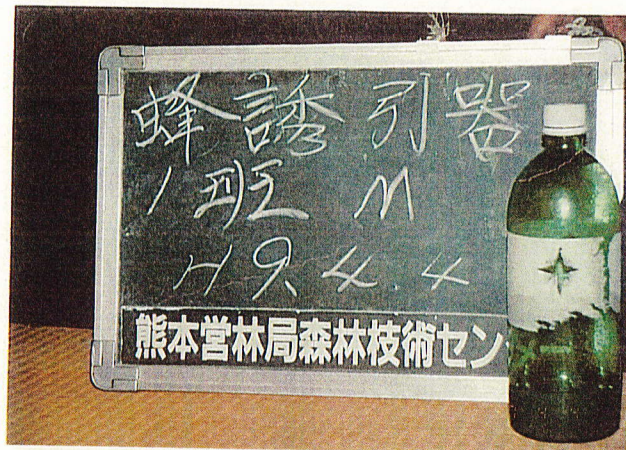 蜂誘引器
1班 M
H9.4.4
熊本営林局森林技術セン